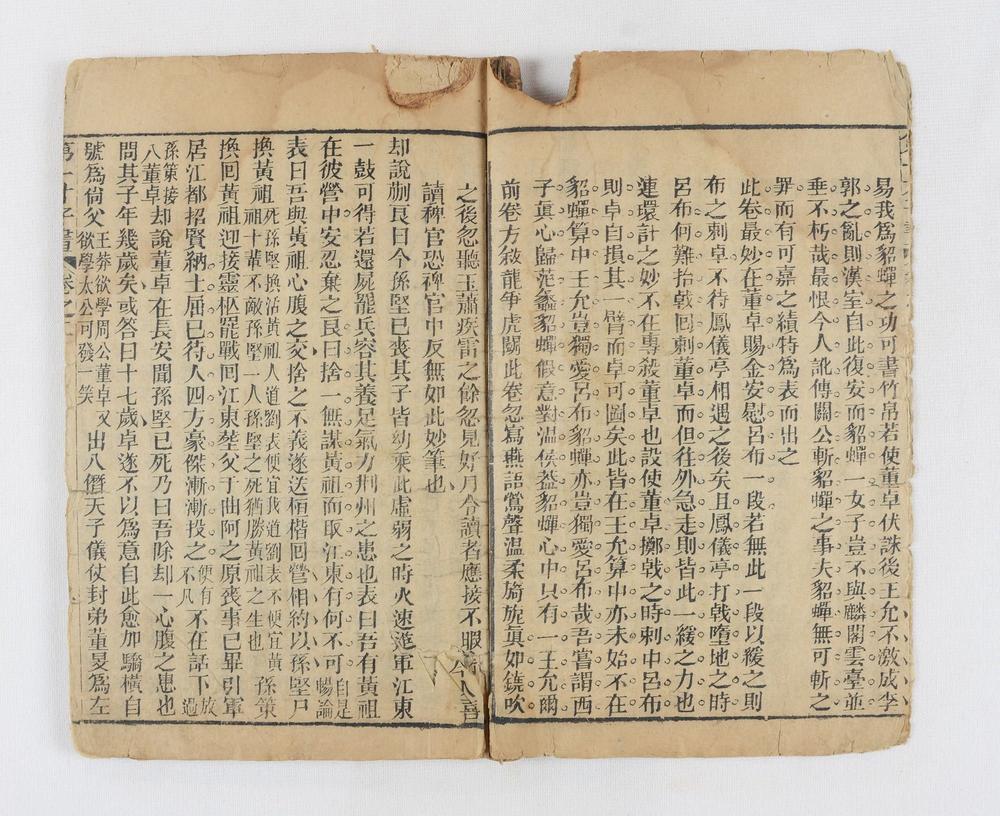 易我爲貂蟬之功可書竹帛若使董卓伏誅後王允不激成李
郭之亂則漢室自此復安而貂蟬一女子豈不與麟閣雲臺並
垂不朽哉最恨今人訛傳關公斬貂蟬之事夫貂蟬無可斬之
罪而有可嘉之績特爲表而出之
此卷最妙在董卓賜金安慰呂布一段若無此一段以緩之則
布之刺卓不待鳳儀亭相遇之後矣且鳳儀亭打戟墮地之時
呂布何難拾戟回刺董卓而但往外急走則皆此一緩之力也
連環計之妙不在專殺董卓也設使董卓擲戟之時刺中呂布
則卓自損其一臂而卓可圖矣此皆在王允算中亦未始不在
貂蟬算中王允豈獨愛呂布貂蟬亦豈獨愛呂布哉吾嘗謂西
子眞心歸范蠡貂蟬假意對温侯蓋貂蟬心中只有一王允爾
前卷方敘龍爭虎鬬此卷忽寫燕語鶯聲温柔旖旎眞如鐃吹
之後忽聽玉蕭疾雷之餘忽見好月令讀者應接不暇 人喜
讀稗官恐稗官中反無如此妙筆也
却說蒯良曰今孫堅已喪其子皆幼乘此虛弱之時火速進軍江東
一鼓可得若還屍罷兵容其養足氣力荆州之患也表曰吾有黃祖
在彼營中安忍棄之良曰捨一無謀黃祖而取江東有何不可自是暢論
表曰吾與黃祖心腹之交捨之不義遂送桓楷回營相約以孫堅尸
換黃祖死孫堅換活黃祖人道劉表便宜我道劉表不便宜黃祖十輩不敵孫堅一人孫堅之死猶勝黃祖之生也孫策
換回黃祖迎接靈柩罷戰回江東塟父于曲阿之原喪事已畢引軍
居江都招賢納士屈已待人四方豪傑漸漸投之便有不凡不在話下放過
孫策接八董卓却說董卓在長安聞孫堅已死乃曰吾除却一心腹之患也
問其子年幾歲矣或答曰十七歲卓遂不以爲意自此愈加驕橫自
號爲尙父王莽欲學周公董卓欲學太公可發一笑又出入僭天子儀仗封弟董旻爲左
第一才子書 卷之